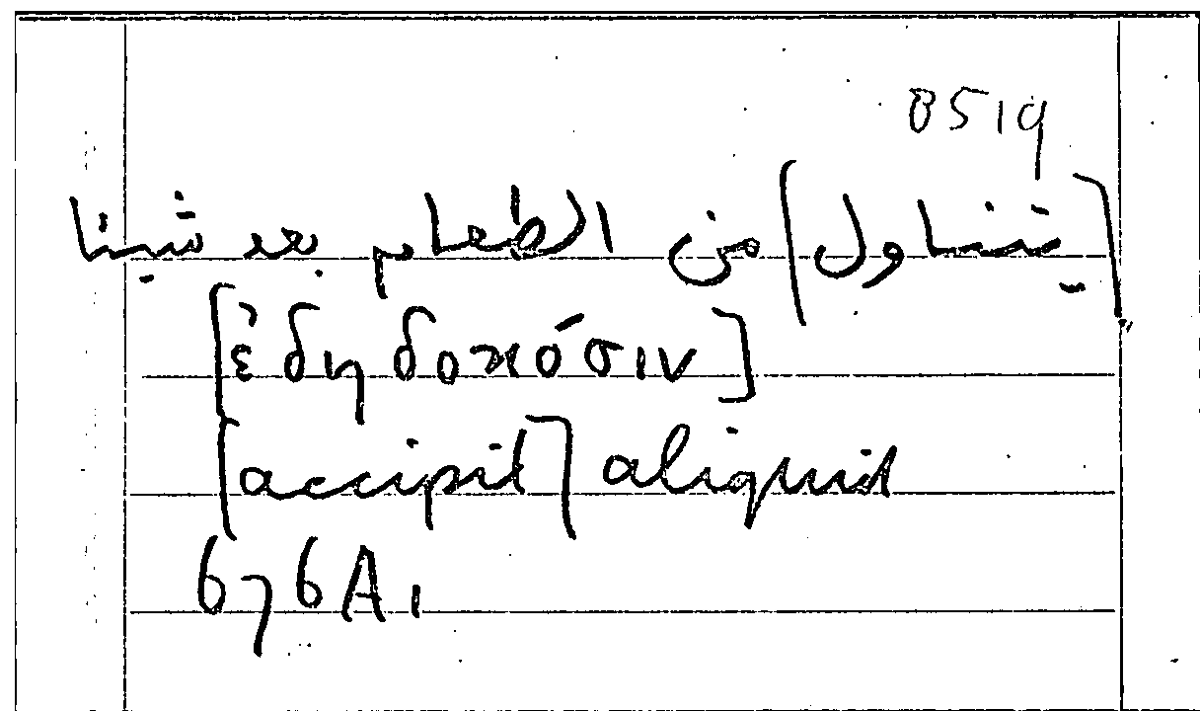 0519
[يتناول] من الطعام بعد شيئا
[ἐδηδοκόσιν]
[accipit] aliquid
676A1